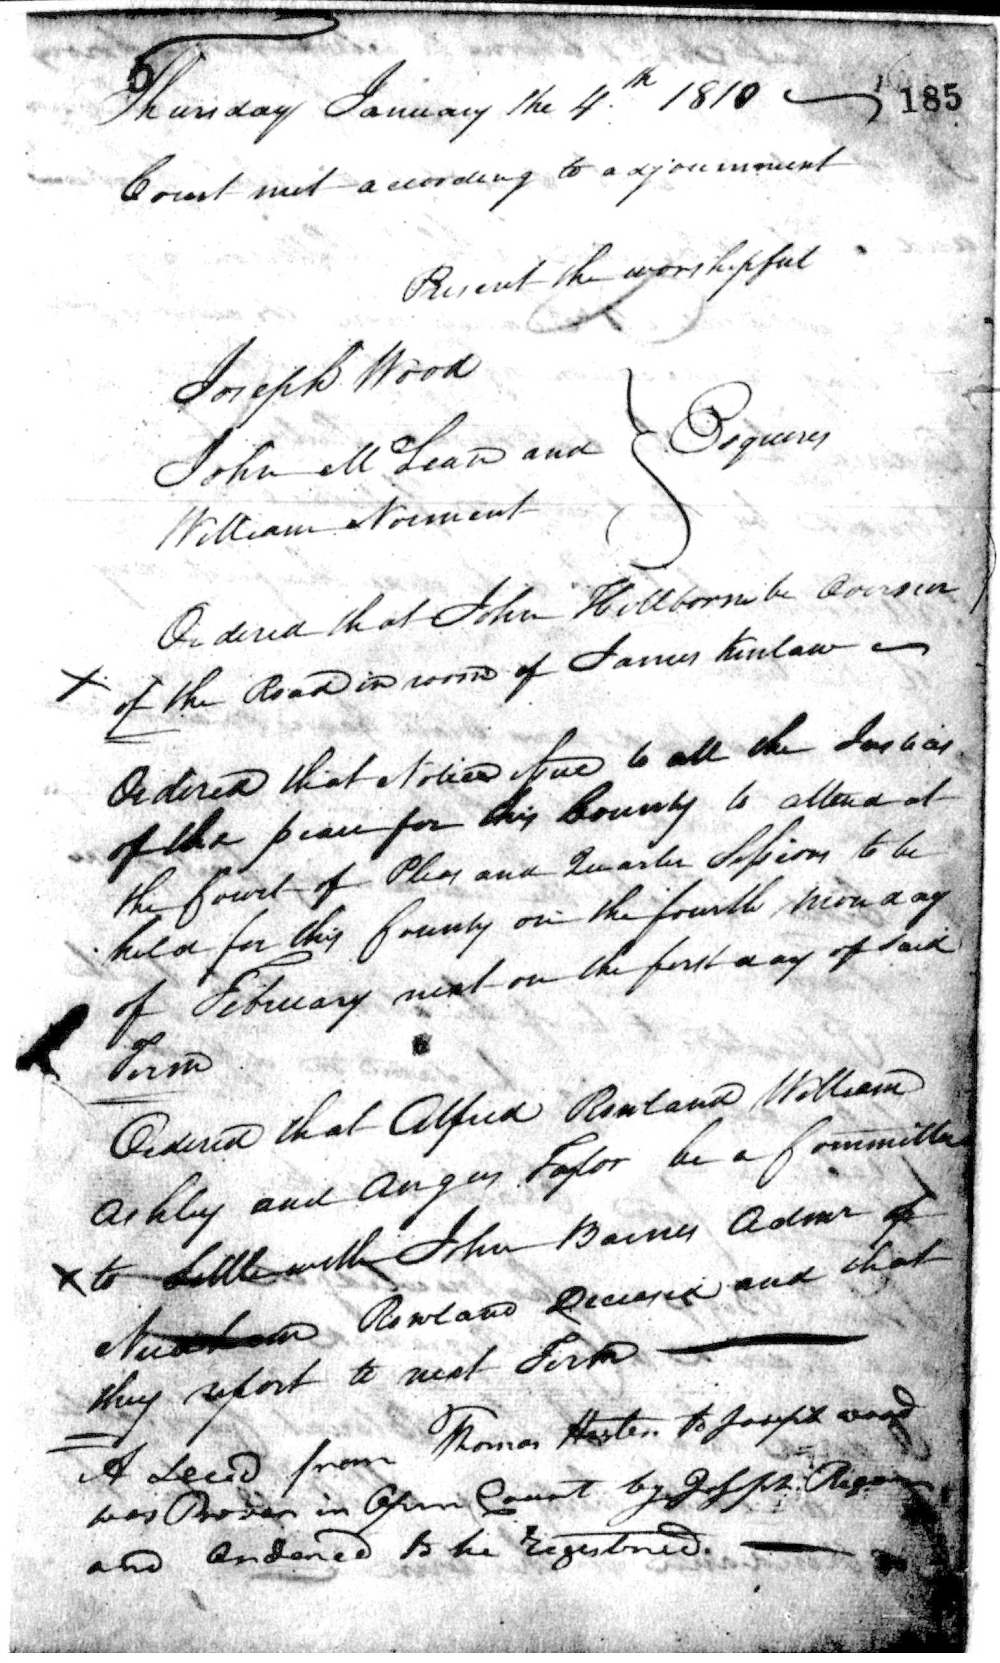 Thursday January the 4th 1810 185
Court met according to adjournment
Present the worshipful
Joseph Wood
John McLean and Esquires
William Norment
Ordered that John Hillborn be Overseer
of the Road in room of James Kinlaw
Ordered that Notice Issue to all the Justices
of the peace for this County to attend at
the Court of Pleas and Quarter Sessions to be
held for this County on the fourth monday
of February next on the first day of said
Term
Ordered that Alfred Rowland William
Ashley and Angus Taylor be a Committee
to Settle with John Barnes Admr of
Rowland Deceased and that
they report to next Term
A Deed from Thomas to Joseph wood
was Proven in Open Court by Joseph Regan
and Ordered to be registered.